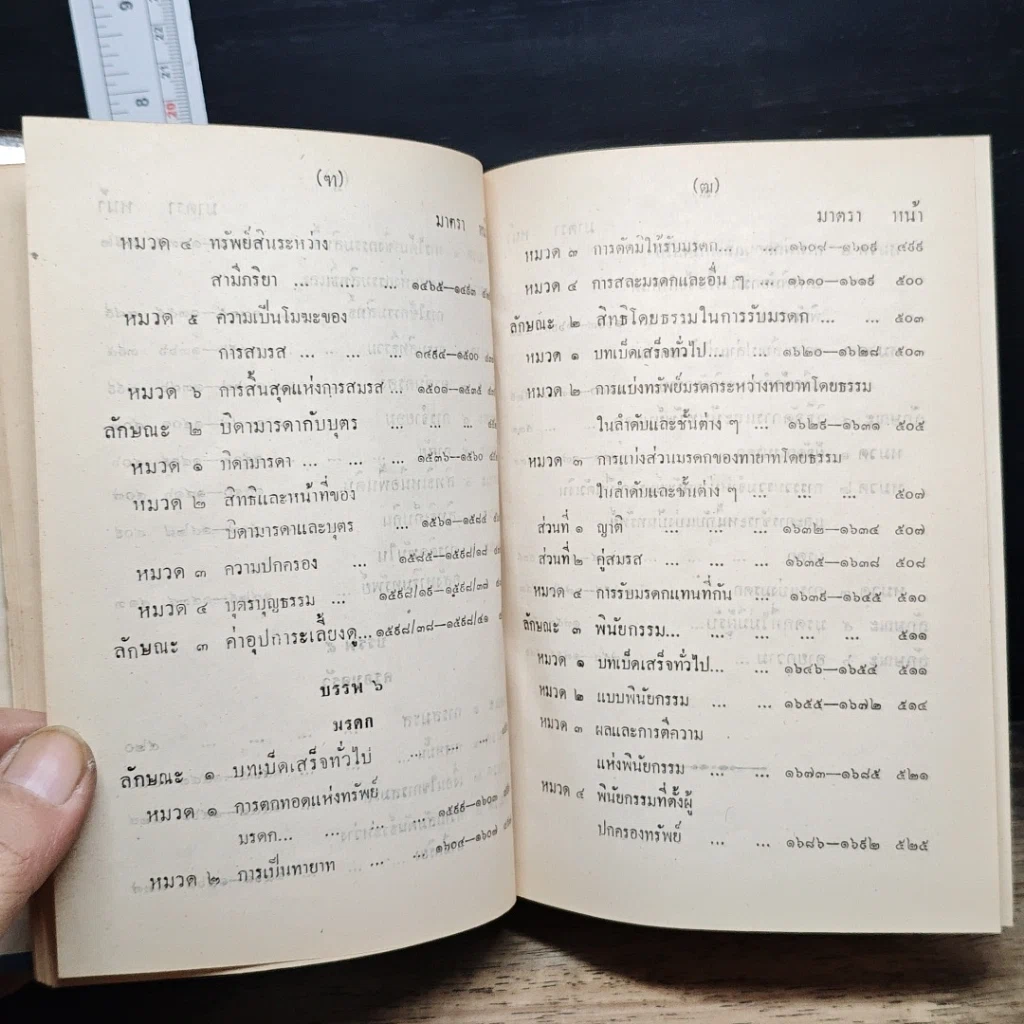 (ฑ)
มาตรา
หมวด ๔ ทรัพย์สินระหว่าง
สามีภริยา ... ... ... ๑๔๖๕—๑๔๙๓
หมวด ๕ ความเป็นโมฆะของ
การสมรส ... ... ๑๔๙๔—๑๕๐๐
หมวด ๖ การสิ้นสุดแห่งการสมรส ... ๑๕๐๑—๑๕๓๕
ลักษณะ ๒ บิดามารดากับบุตร ... ... ...
หมวด ๑ บิดามารดา ... ... ... ๑๕๓๖—๑๕๖๐
หมวด ๒ สิทธิและหน้าที่ของ
บิดามารดาและบุตร ... ๑๕๖๑—๑๕๘๔
หมวด ๓ ความปกครอง ... ๑๕๘๕—๑๕๙๘/๑๘
หมวด ๔ บุตรบุญธรรม ... ๑๕๙๘/๑๙—๑๕๙๘/๓๗
ลักษณะ ๓ ค่าอุปการะเลี้ยงดู... ๑๕๙๘/๓๘—๑๕๙๘/๔๑
บรรพ ๖
มรดก
ลักษณะ ๑ บทเบ็ดเสร็จทั่วไป ... ... ...
หมวด ๑ การตกทอดแห่งทรัพย์
มรดก... ... ... ... ๑๕๙๙—๑๖๐๓
หมวด ๒ การเป็นทายาท ... ... ๑๖๐๔—๑๖๐๗
(ฒ)
มาตรา หน้า
หมวด ๓ การตัดมิให้รับมรดก... ... ๑๖๐๘—๑๖๐๙ ๔๙๙
หมวด ๔ การสละมรดกและอื่น ๆ ... ๑๖๑๐—๑๖๑๙ ๕๐๐
ลักษณะ ๒ สิทธิโดยธรรมในการรับมรดก ... ... ๕๐๓
หมวด ๑ บทเบ็ดเสร็จทั่วไป... ... ๑๖๒๐—๑๖๒๘ ๕๐๓
หมวด ๒ การแบ่งทรัพย์มรดกระหว่างทายาทโดยธรรม
ในลำดับและชั้นต่าง ๆ ... ๑๖๒๙—๑๖๓๑ ๕๐๕
หมวด ๓ การแบ่งส่วนมรดกของทายาทโดยธรรม
ในลำดับและชั้นต่าง ๆ ... ... ... ๕๐๗
ส่วนที่ ๑ ญาติ ... ... ... ๑๖๓๒—๑๖๓๔ ๕๐๗
ส่วนที่ ๒ คู่สมรส ... ... ๑๖๓๕—๑๖๓๘ ๕๐๘
หมวด ๔ การรับมรดกแทนที่กัน ... ๑๖๓๙—๑๖๔๕ ๕๑๐
ลักษณะ ๓ พินัยกรรม... ... ... ... ... ๕๑๑
หมวด ๑ บทเบ็ดเสร็จทั่วไป... ... ๑๖๔๖—๑๖๕๔ ๕๑๑
หมวด ๒ แบบพินัยกรรม ... ... ๑๖๕๕—๑๖๗๒ ๕๑๔
หมวด ๓ ผลและการตีความ
แห่งพินัยกรรม ... ... ๑๖๗๓—๑๖๘๕ ๕๒๑
หมวด ๔ พินัยกรรมที่ตั้งผู้
ปกครองทรัพย์ ... ... ๑๖๘๖—๑๖๙๒ ๕๒๕